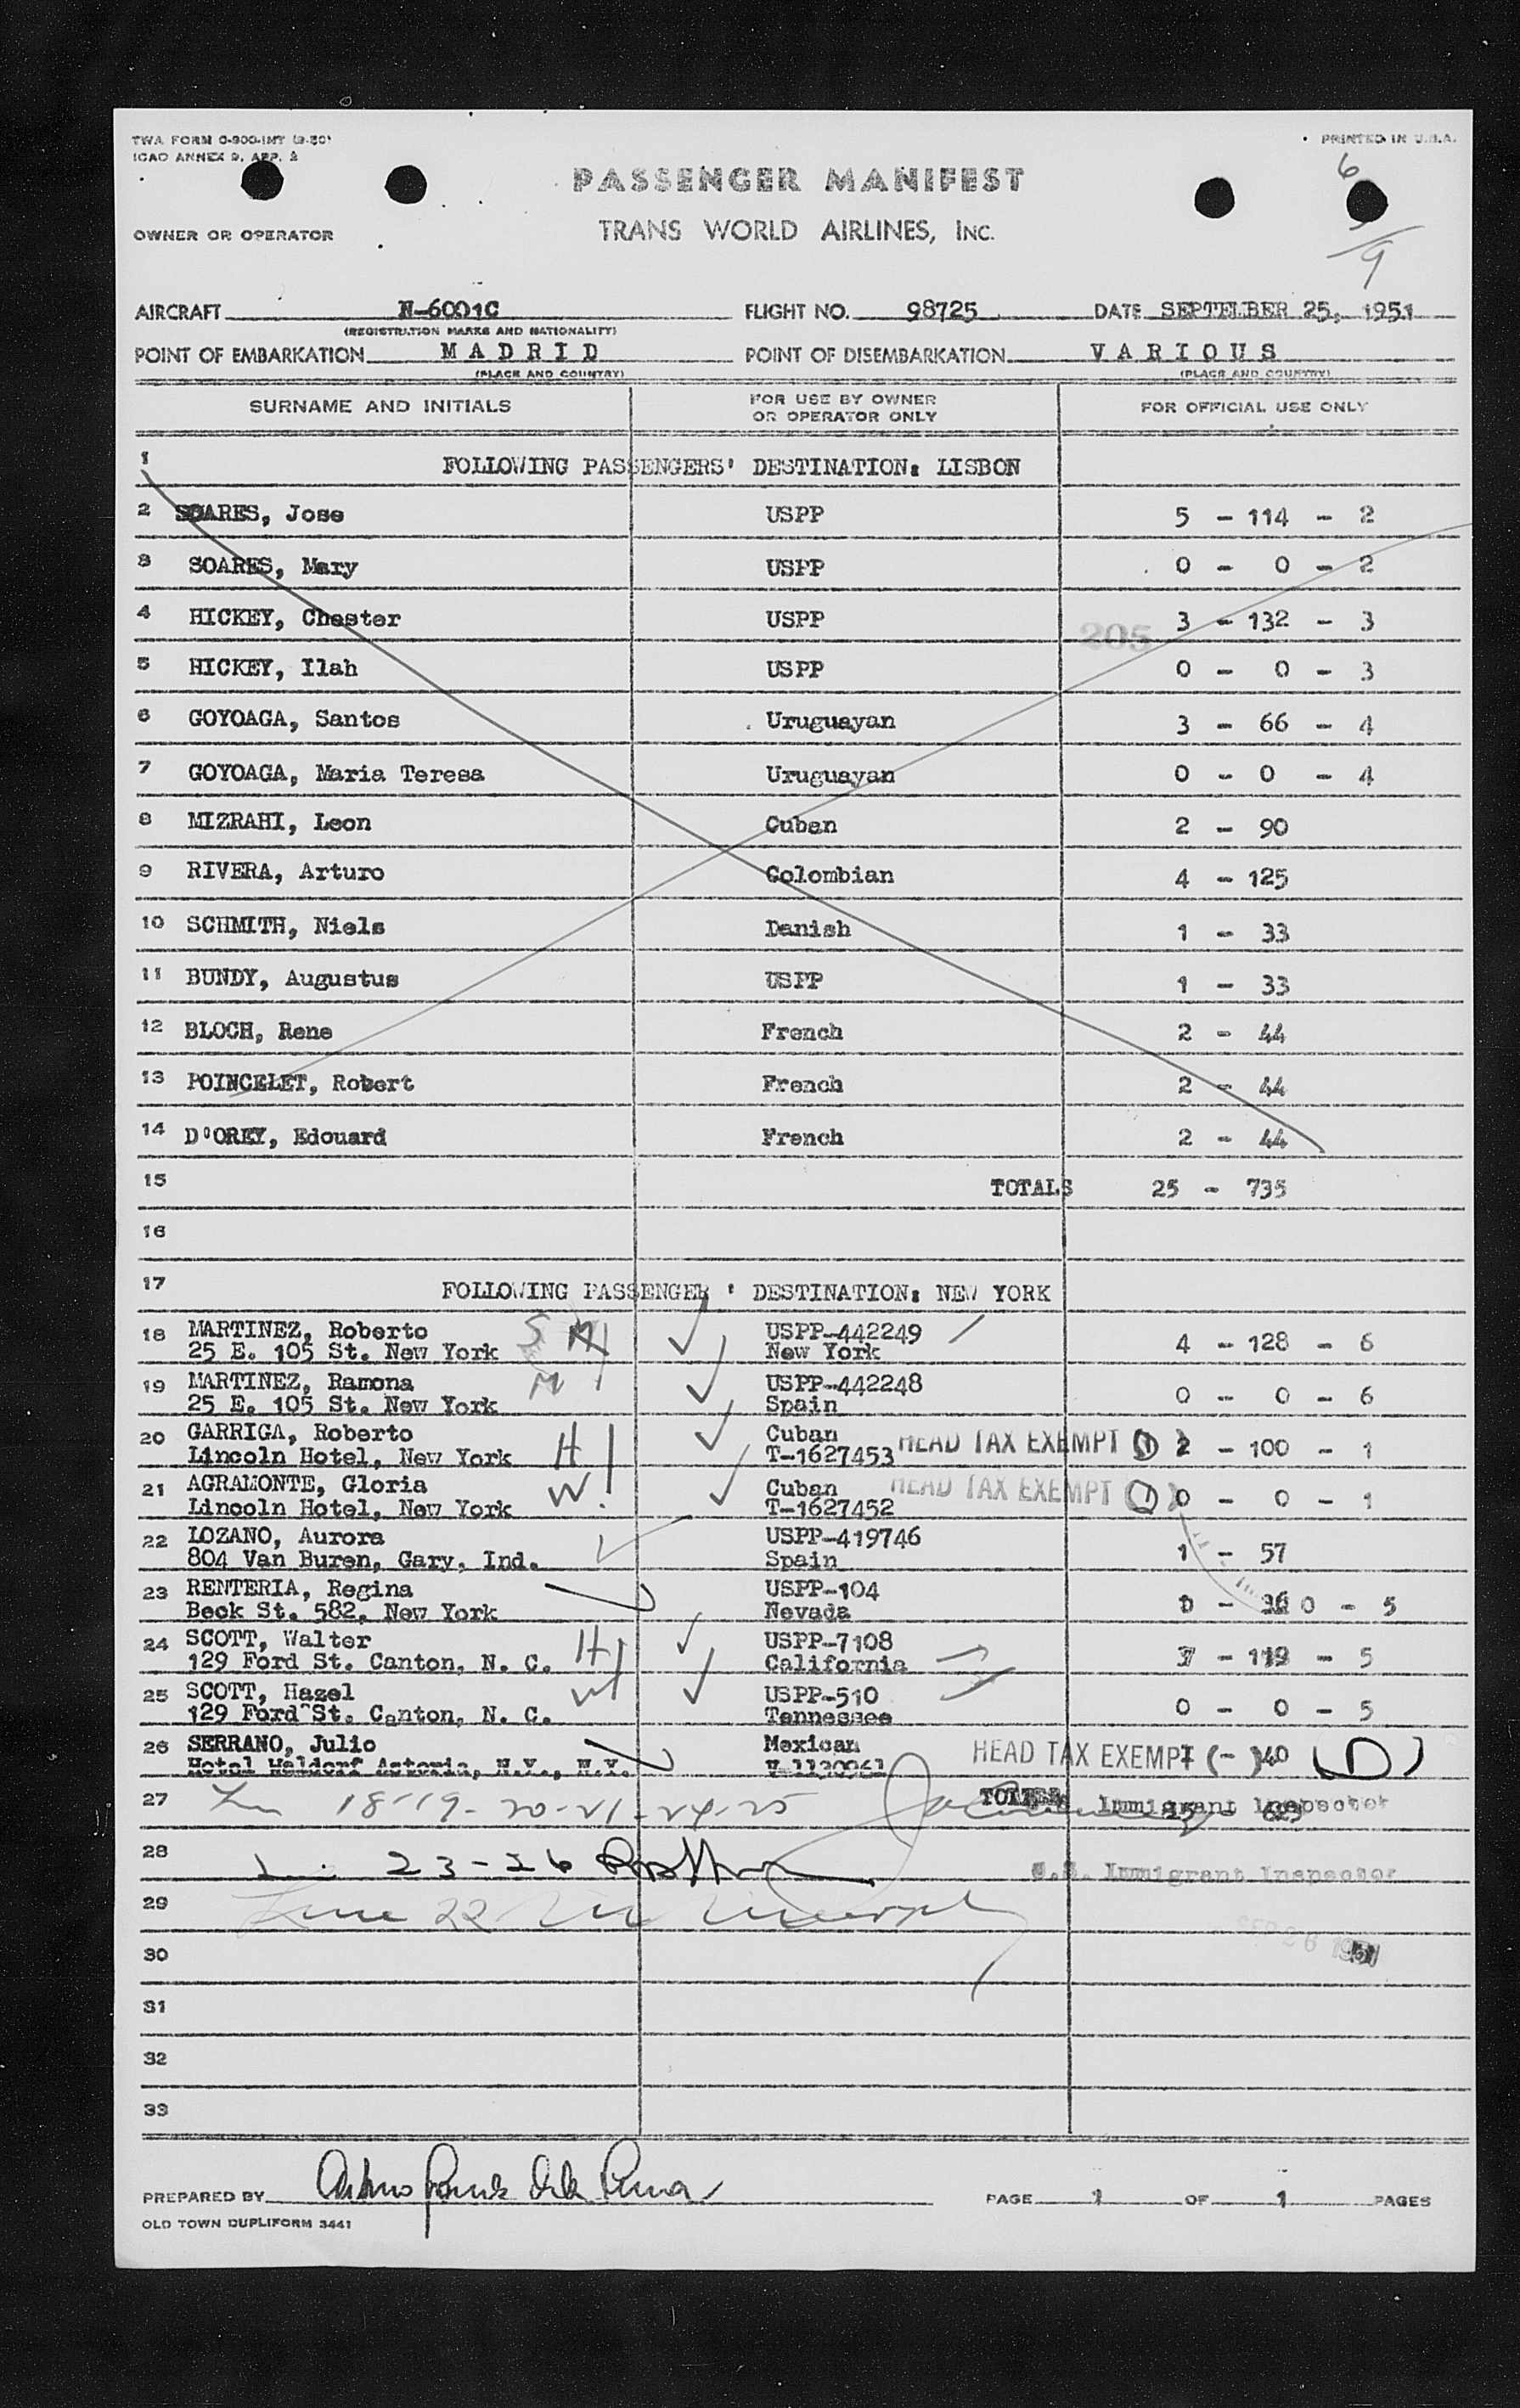 TWA FORM O-900-INT (9-50)
ICAO ANNEX 9, APP. 2
PRINTED IN U.S.A.
6
PASSENGER MANIFEST
OWNER OR OPERATOR
TRANS WORLD AIRLINES, INC.
9
AIRCRAFT N-6001C FLIGHT NO. 98725 DATE SEPTEMBER 25, 1951
(REGISTRATION MARKS AND NATIONALITY)
POINT OF EMBARKATION MADRID POINT OF DISEMBARKATION VARIOUS
(PLACE AND COUNTRY) (PLACE AND COUNTRY)
SURNAME AND INITIALS FOR USE BY OWNER OR OPERATOR ONLY FOR OFFICIAL USE ONLY
1 FOLLOWING PASSENGERS' DESTINATION: LISBON
2 SOARES, Jose USPP 5 - 114 - 2
3 SOARES, Mary USPP 0 - 0 - 2
4 HICKEY, Chester USPP 205 3 - 132 - 3
5 HICKEY, Ilah USPP 0 - 0 - 3
6 GOYOAGA, Santos Uruguayan 3 - 66 - 4
7 GOYOAGA, Maria Teresa Uruguayan 0 - 0 - 4
8 MIZRAHI, Leon Cuban 2 - 90
9 RIVERA, Arturo Colombian 4 - 125
10 SCHMITH, Niels Danish 1 - 33
11 BUNDY, Augustus USPP 1 - 33
12 BLOCH, Rene French 2 - 44
13 POINCELET, Robert French 2 - 44
14 D'OREY, Edouard French 2 - 44
15 TOTALS 25 - 735
16
17 FOLLOWING PASSENGER ' DESTINATION: NEW YORK
18 MARTINEZ, Roberto USPP-442249 4 - 128 - 6
25 E. 105 St. New York New York
19 MARTINEZ, Ramona M USPP-442248 0 - 0 - 6
25 E. 105 St. New York Spain
20 GARRIGA, Roberto H Cuban HEAD TAX EXEMPT (1) 2 - 100 - 1
Lincoln Hotel, New York T-1627453
21 AGRAMONTE, Gloria W Cuban HEAD TAX EXEMPT (1) 0 - 0 - 1
Lincoln Hotel, New York T-1627452
22 LOZANO, Aurora USPP-419746 1 - 57
804 Van Buren, Gary, Ind. Spain
23 RENTERIA, Regina USPP-104 0 - 0 - 5
Beck St. 582, New York Nevada
24 SCOTT, Walter H USPP-7108 - 5
129 Ford St. Canton, N. C. California
25 SCOTT, Hazel W USPP-510 0 - 0 - 5
129 Ford St. Canton, N. C. Tennessee
26 SERRANO, Julio Mexican HEAD TAX EXEMPT (-) 40 (1)
Hotel Waldorf Astoria, N.Y., N.Y. V-1130961
27 18-19-20-21-24-25 Immigrant Inspector
28 23-26 U.S. Immigrant Inspector
29 Line 22
30 SEP 26 1951
31
32
33
PREPARED BY PAGE 1 OF 1 PAGES
OLD TOWN DUPLIFORM 3441